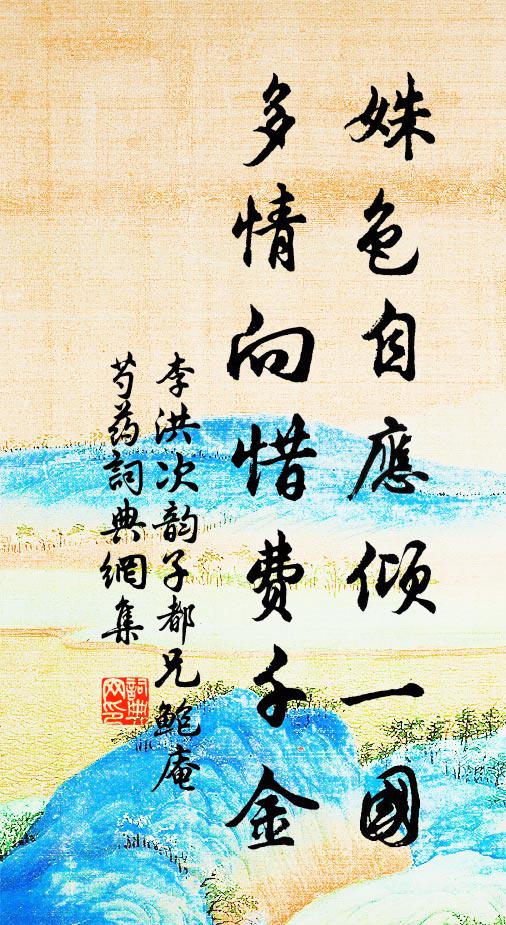 姝色自應傾一國
多情向惜費千金
李洪次韵子都兄鲍庵
芍药詞典網集
詞典
网印